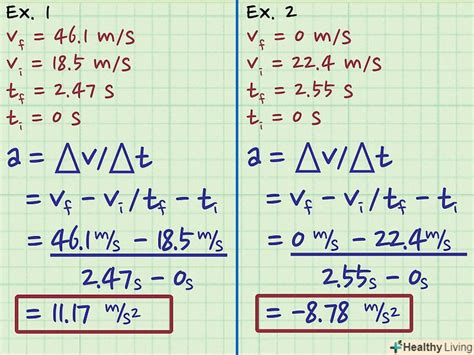 Ex. 1
v_f = 46.1 m/s
v_i = 18.5 m/s
t_f = 2.47 s
t_i = 0 s
a = Δv/Δt
= v_f - v_i / t_f - t_i
= 46.1 m/s - 18.5 m/s
2.47s - 0s
= 11.17 m/s²
Ex. 2
v_f = 0 m/s
v_i = 22.4 m/s
t_f = 2.55 s
t_i = 0 s
a = Δv/Δt
= v_f - v_i / t_f - t_i
= 0 m/s - 22.4 m/s
2.55s - 0s
= -8.78 m/s²
Healthy Living